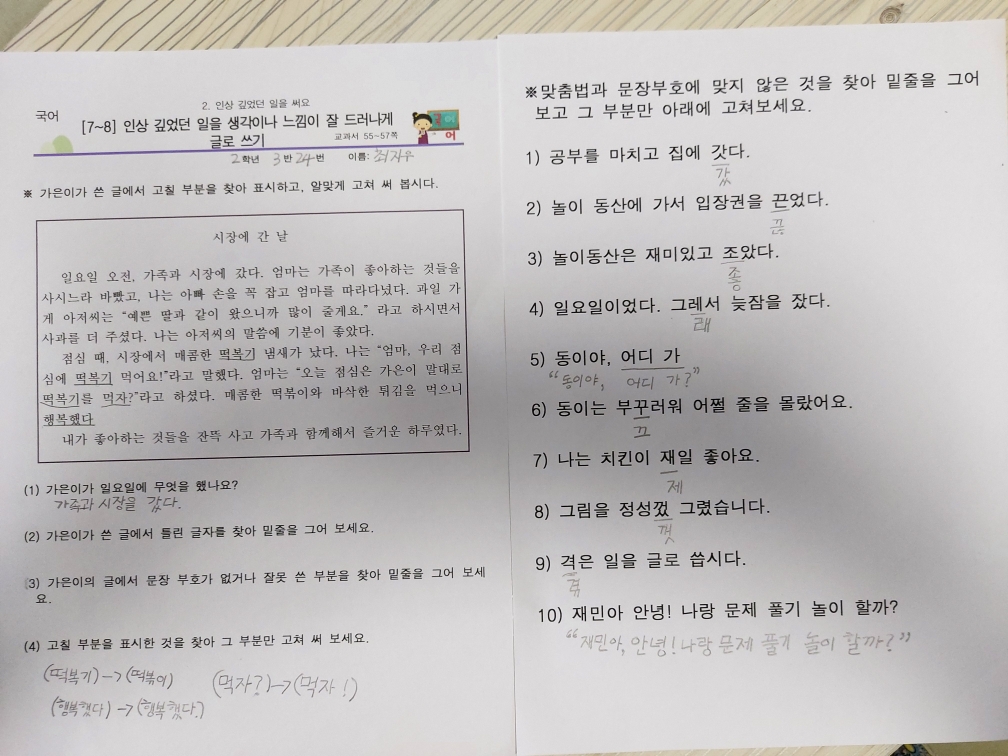 국어
2. 인상 깊었던 일을 써요
[7~8] 인상 깊었던 일을 생각이나 느낌이 잘 드러나게
글로 쓰기
교과서 55~57쪽
국어
2학년 3반 24번 이름: 최지우
※ 가은이가 쓴 글에서 고칠 부분을 찾아 표시하고, 알맞게 고쳐 써 봅시다.
시장에 간 날
일요일 오전, 가족과 시장에 갔다. 엄마는 가족이 좋아하는 것들을
사시느라 바빴고, 나는 아빠 손을 꼭 잡고 엄마를 따라다녔다. 과일 가
게 아저씨는 “예쁜 딸과 같이 왔으니까 많이 줄게요.” 라고 하시면서
사과를 더 주셨다. 나는 아저씨의 말씀에 기분이 좋았다.
점심 때, 시장에서 매콤한 떡복기 냄새가 났다. 나는 “엄마, 우리 점
심에 떡복기 먹어요!”라고 말했다. 엄마는 “오늘 점심은 가은이 말대로
떡복기를 먹자?”라고 하셨다. 매콤한 떡볶이와 바삭한 튀김을 먹으니
행복했다
내가 좋아하는 것들을 잔뜩 사고 가족과 함께해서 즐거운 하루였다.
(1) 가은이가 일요일에 무엇을 했나요?
가족과 시장을 갔다.
(2) 가은이가 쓴 글에서 틀린 글자를 찾아 밑줄을 그어 보세요.
(3) 가은이의 글에서 문장 부호가 없거나 잘못 쓴 부분을 찾아 밑줄을 그어 보세
요.
(4) 고칠 부분을 표시한 것을 찾아 그 부분만 고쳐 써 보세요.
(떡복기)->(떡볶이) (먹자?)->(먹자!)
(행복했다)->(행복했다.)
※맞춤법과 문장부호에 맞지 않은 것을 찾아 밑줄을 그어
보고 그 부분만 아래에 고쳐보세요.
1) 공부를 마치고 집에 갓다.
갔
2) 놀이 동산에 가서 입장권을 끈었다.
끊
3) 놀이동산은 재미있고 조았다.
좋
4) 일요일이었다. 그레서 늦잠을 잤다.
래
5) 동이야, 어디 가
“동이야, 어디 가?”
6) 동이는 부꾸러워 어쩔 줄을 몰랐어요.
끄
7) 나는 치킨이 재일 좋아요.
제
8) 그림을 정성껐 그렸습니다.
껏
9) 격은 일을 글로 씁시다.
겪
10) 재민아 안녕! 나랑 문제 풀기 놀이 할까?
“재민아, 안녕! 나랑 문제 풀기 놀이 할까?”